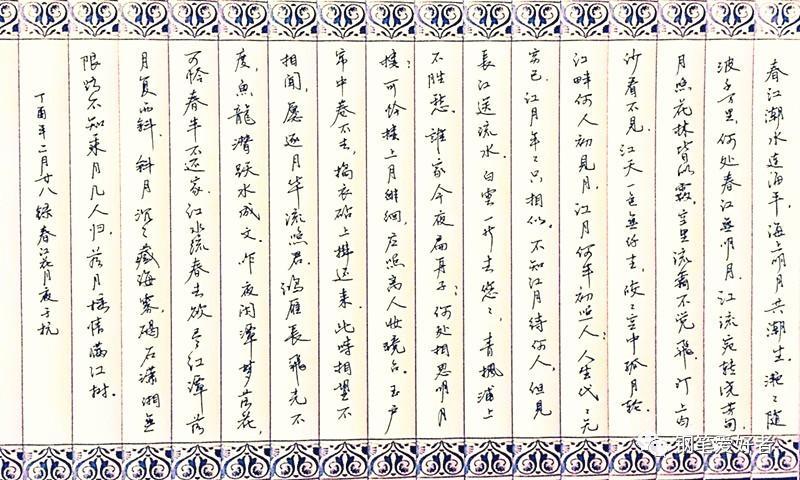 春江潮水连海平,海上明月共潮生。滟々随
波千万里,何处春江無明月。江流宛转绕芳甸,
月照花林皆似霰。空里流霜不觉飛,汀上白
沙看不见。江天一色無纤尘,皎々空中孤月轮。
江畔何人初見月,江月何年初照人;人生代々无
穷已,江月年々只相似。不知江月待何人,但見
長江送流水。白雲一片去悠々,青枫浦上
不胜愁。誰家今夜扁舟子;何处相思明月
楼;可怜楼上月徘徊,应照离人妆镜台。玉户
帘中卷不去,捣衣砧上拂还来。此時相望不
相闻,愿逐月华流照君。鸿雁長飛光不
度,魚龍潜跃水成文。昨夜闲潭梦落花,
可怜春半不还家。江水流春去欲尽,江潭落
月复西斜。斜月沉々藏海雾,碣石潇湘無
限路。不知乘月几人归,落月摇情满江树。
丁酉年二月廿八録春江花月夜于杭
钢笔爱好者